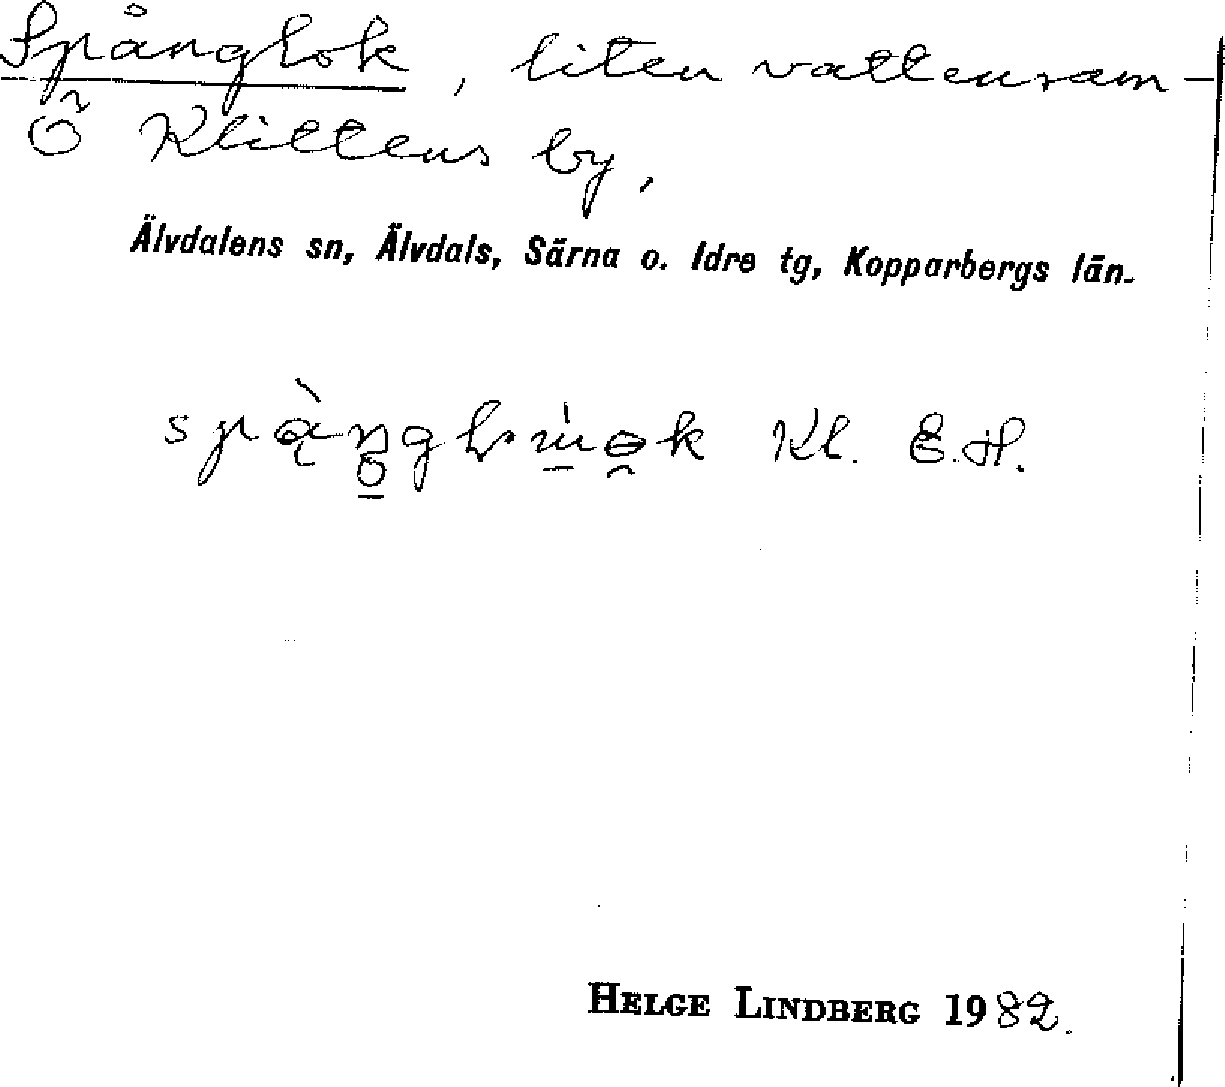 Spånghok, liten vattensam-
Õ Klittens by,
Älvdalens sn, Älvdals, Särna o. Idre tg, Kopparbergs län.
Kl. E.H.
HELGE LINDBERG 1982.